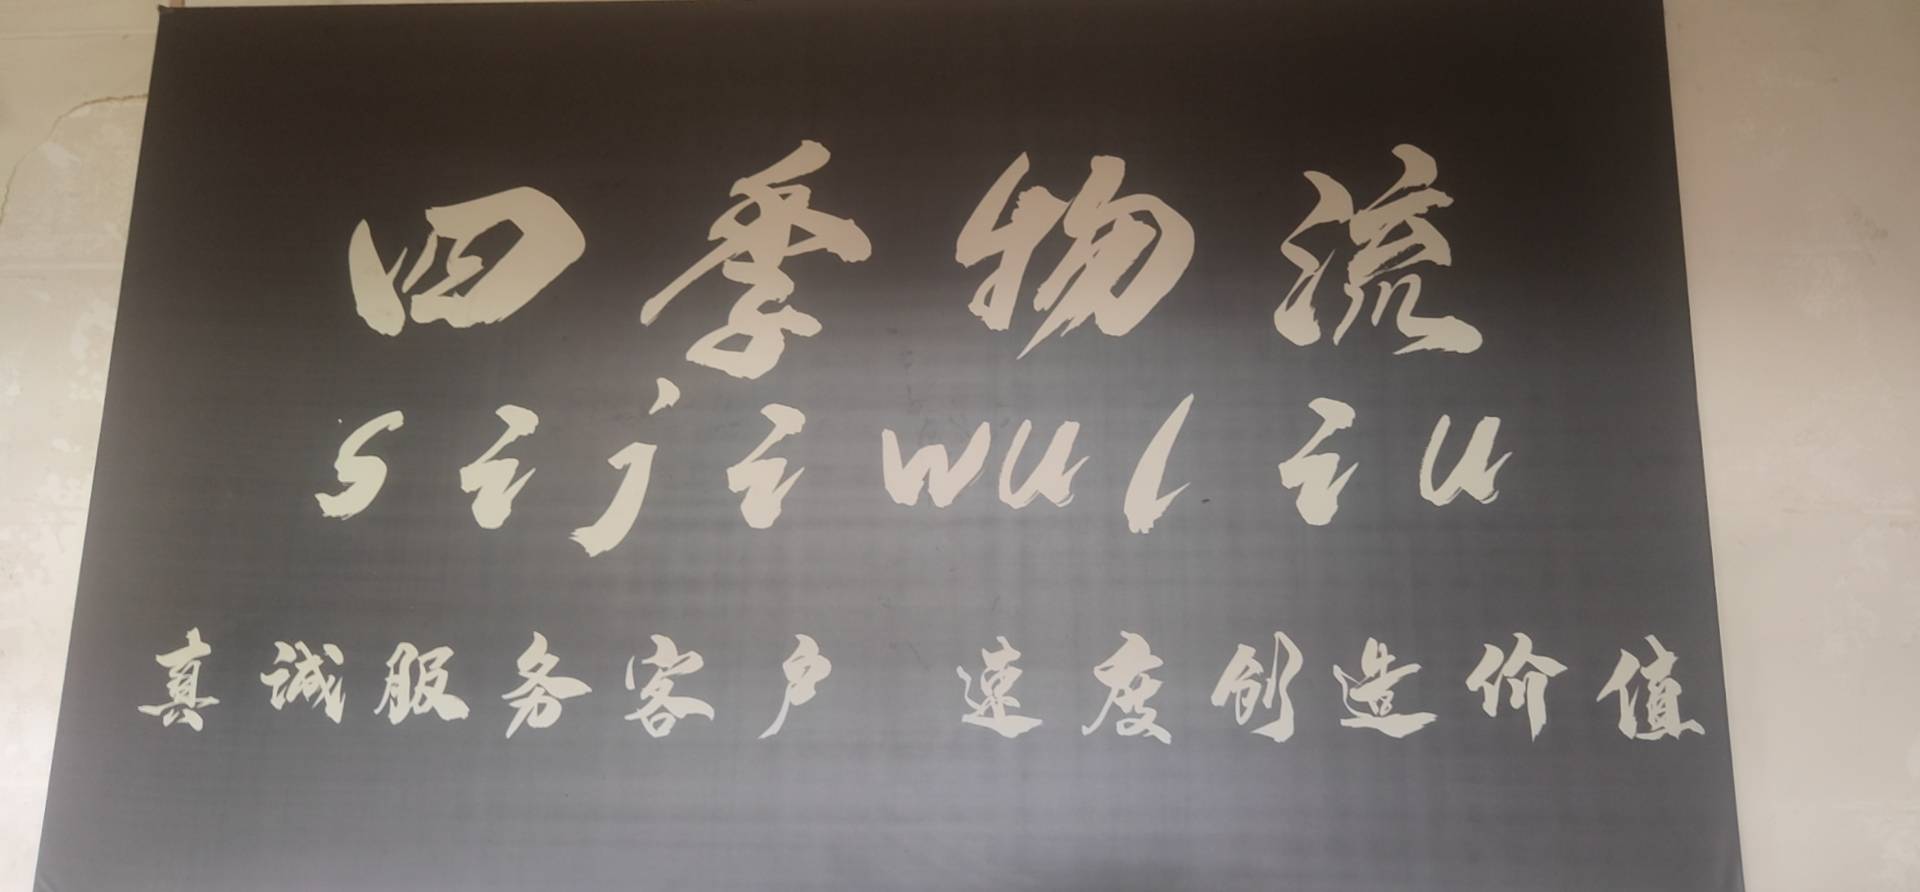 四季物流
sijiwuliu
真诚服务客户 速度创造价值